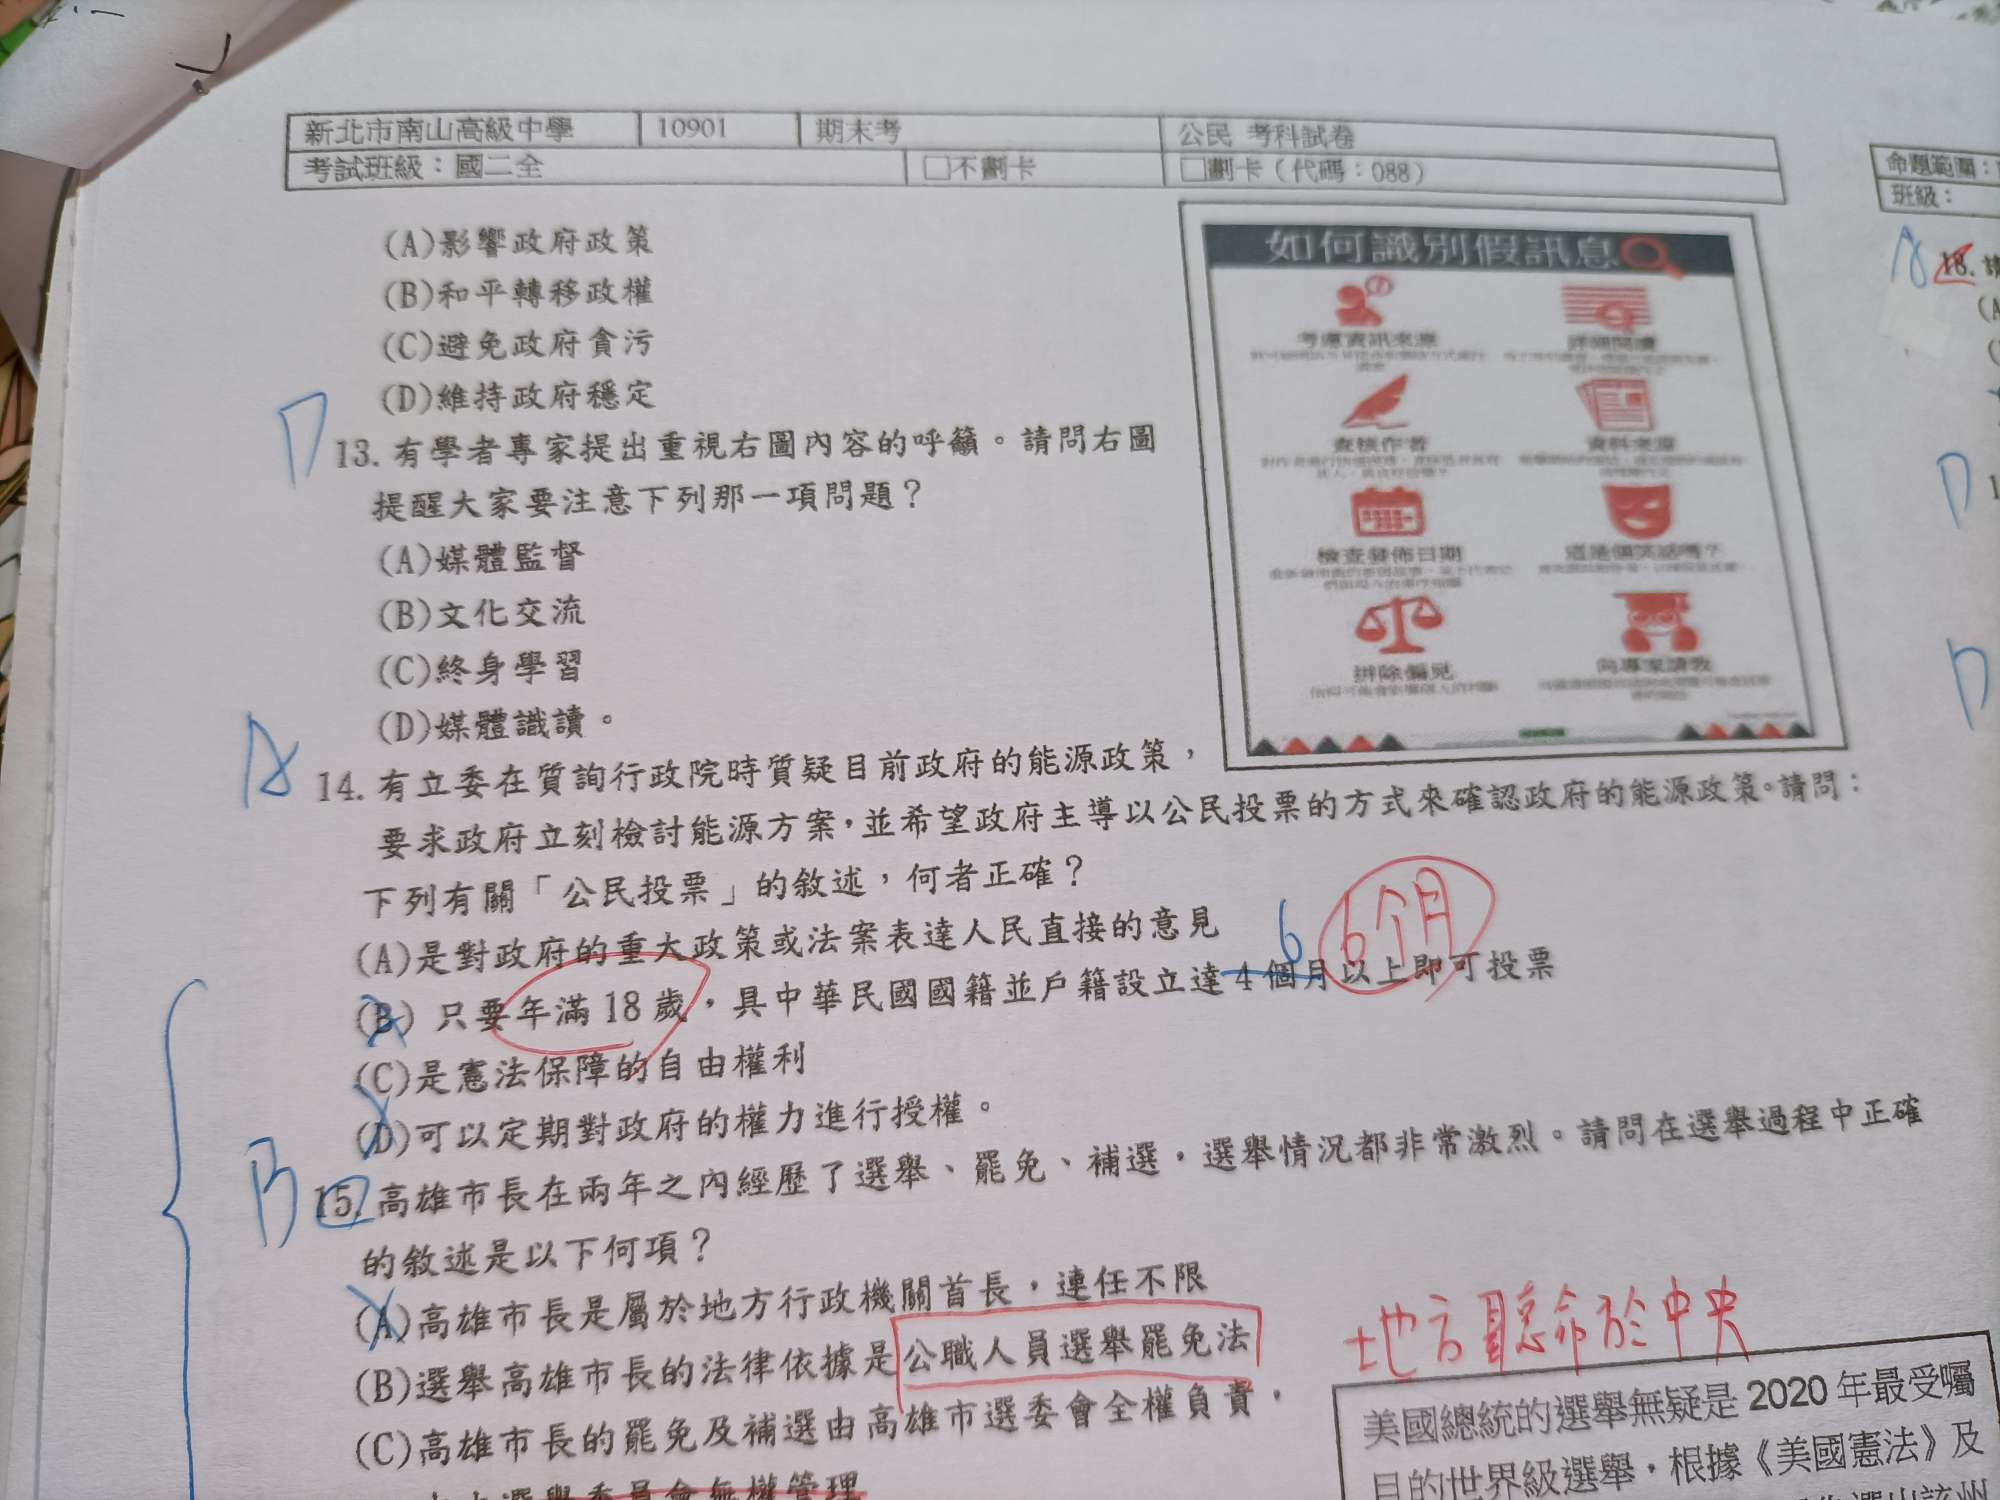 新北市南山高級中學 10901 期末考 公民 考科試卷
考試班級：國二全 □不劃卡 □劃卡（代碼：088）
命題範圍：
班級：
(A)影響政府政策
(B)和平轉移政權
(C)避免政府貪污
(D)維持政府穩定
D 13. 有學者專家提出重視右圖內容的呼籲。請問右圖
提醒大家要注意下列那一項問題？
(A)媒體監督
(B)文化交流
(C)終身學習
(D)媒體識讀。
如何識別假訊息
考慮資訊來源 詳細閱讀
查核作者 資料來源
檢查發佈日期 這是個笑話嗎？
排除偏見 向專家請教
A 14. 有立委在質詢行政院時質疑目前政府的能源政策，
要求政府立刻檢討能源方案，並希望政府主導以公民投票的方式來確認政府的能源政策。請問：
下列有關「公民投票」的敘述，何者正確？
(A)是對政府的重大政策或法案表達人民直接的意見
6 6个月
(B) 只要年滿 18 歲，具中華民國國籍並戶籍設立達 4 個月以上即可投票
(C)是憲法保障的自由權利
(D)可以定期對政府的權力進行授權。
B 15. 高雄市長在兩年之內經歷了選舉、罷免、補選，選舉情況都非常激烈。請問在選舉過程中正確
的敘述是以下何項？
(A)高雄市長是屬於地方行政機關首長，連任不限
(B)選舉高雄市長的法律依據是公職人員選舉罷免法
地方聽命於中央
(C)高雄市長的罷免及補選由高雄市選委會全權負責，
選舉委員會無權管理
美國總統的選舉無疑是 2020 年最受囑
目的世界級選舉，根據《美國憲法》及
A 18.
D
D